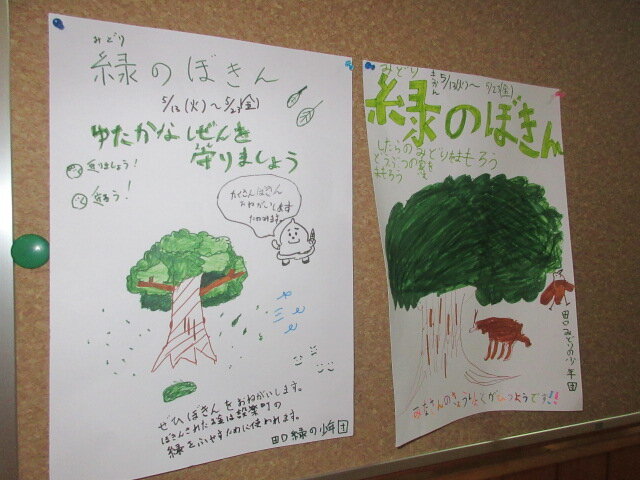 みどり
緑のぼきん
5/13(火)〜5/23(金)
ゆたかなしぜんを
守りましょう
たくさんぼきん
おねがいします
ぜひぼきんをおねがいします。
ぼきんされたお金は設楽町の
緑をふやすために使われます。
田口緑の少年団
みどり
きかん 5/13(火)〜5/23(金)
緑のぼきん
したらのみどりをまもろう
どうぶつの家を
まもろう
田口みどりの少年団
みなさんのきょうりょくがひつようです!!